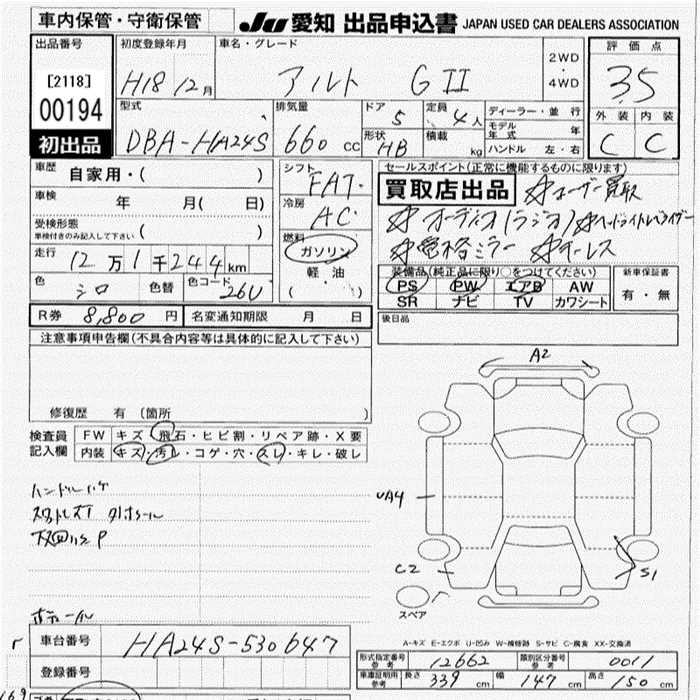 車内保管・守衛保管
JU 愛知 出品申込書 JAPAN USED CAR DEALERS ASSOCIATION
出品番号
[2118]
00194
初出品
初度登録年月
H18 12月
車名・グレード
アルト GⅡ
2WD
・
4WD
評価点
3.5
外装 内装
C C
型式
DBA-HA24S
排気量
660 cc
ドア
5
定員
4人
形状
HB
積載
kg
ディーラー・並行
モデル年式 年
ハンドル 左・右
車歴
自家用・( )
車検
年 月( 日)
受検形態
車検付きのみ記入して下さい ( )
走行
12万1千244km
色
シロ
色替
色コード
26U
シフト
FAT
冷房
AC
燃料
ガソリン
軽油
( ・ )
セールスポイント(正常に機能するものに限ります)
買取店出品 ☆ユーザー買取
☆オーディオ(ラジオ) ☆ヘッドライトレベライザー
☆電格ミラー ☆キーレス
装備品(純正品に限り○をつけてください)
PS PW エアB AW
SR ナビ TV カワシート
新車保証書
有・無
R券 8,800円 名変通知期限 月 日
後日品
注意事項申告欄(不具合内容等は具体的に記入して下さい)
修復歴 有(箇所 )
検査員記入欄
FW キズ・飛石・ヒビ割・リペア跡・X要
内装 キズ・汚レ・コゲ・穴・スレ・キレ・破レ
A2
UA4
C2
S1
スペア
A-キズ E-エクボ U-凹み W-補修跡 S-サビ C-腐食 XX-交換済
車台番号 HA24S-530647
登録番号
形式指定番号 参考 12662
類別区分番号 参考 0011
車庫証明用 参考 長さ 339cm 幅 147cm 高さ 150cm